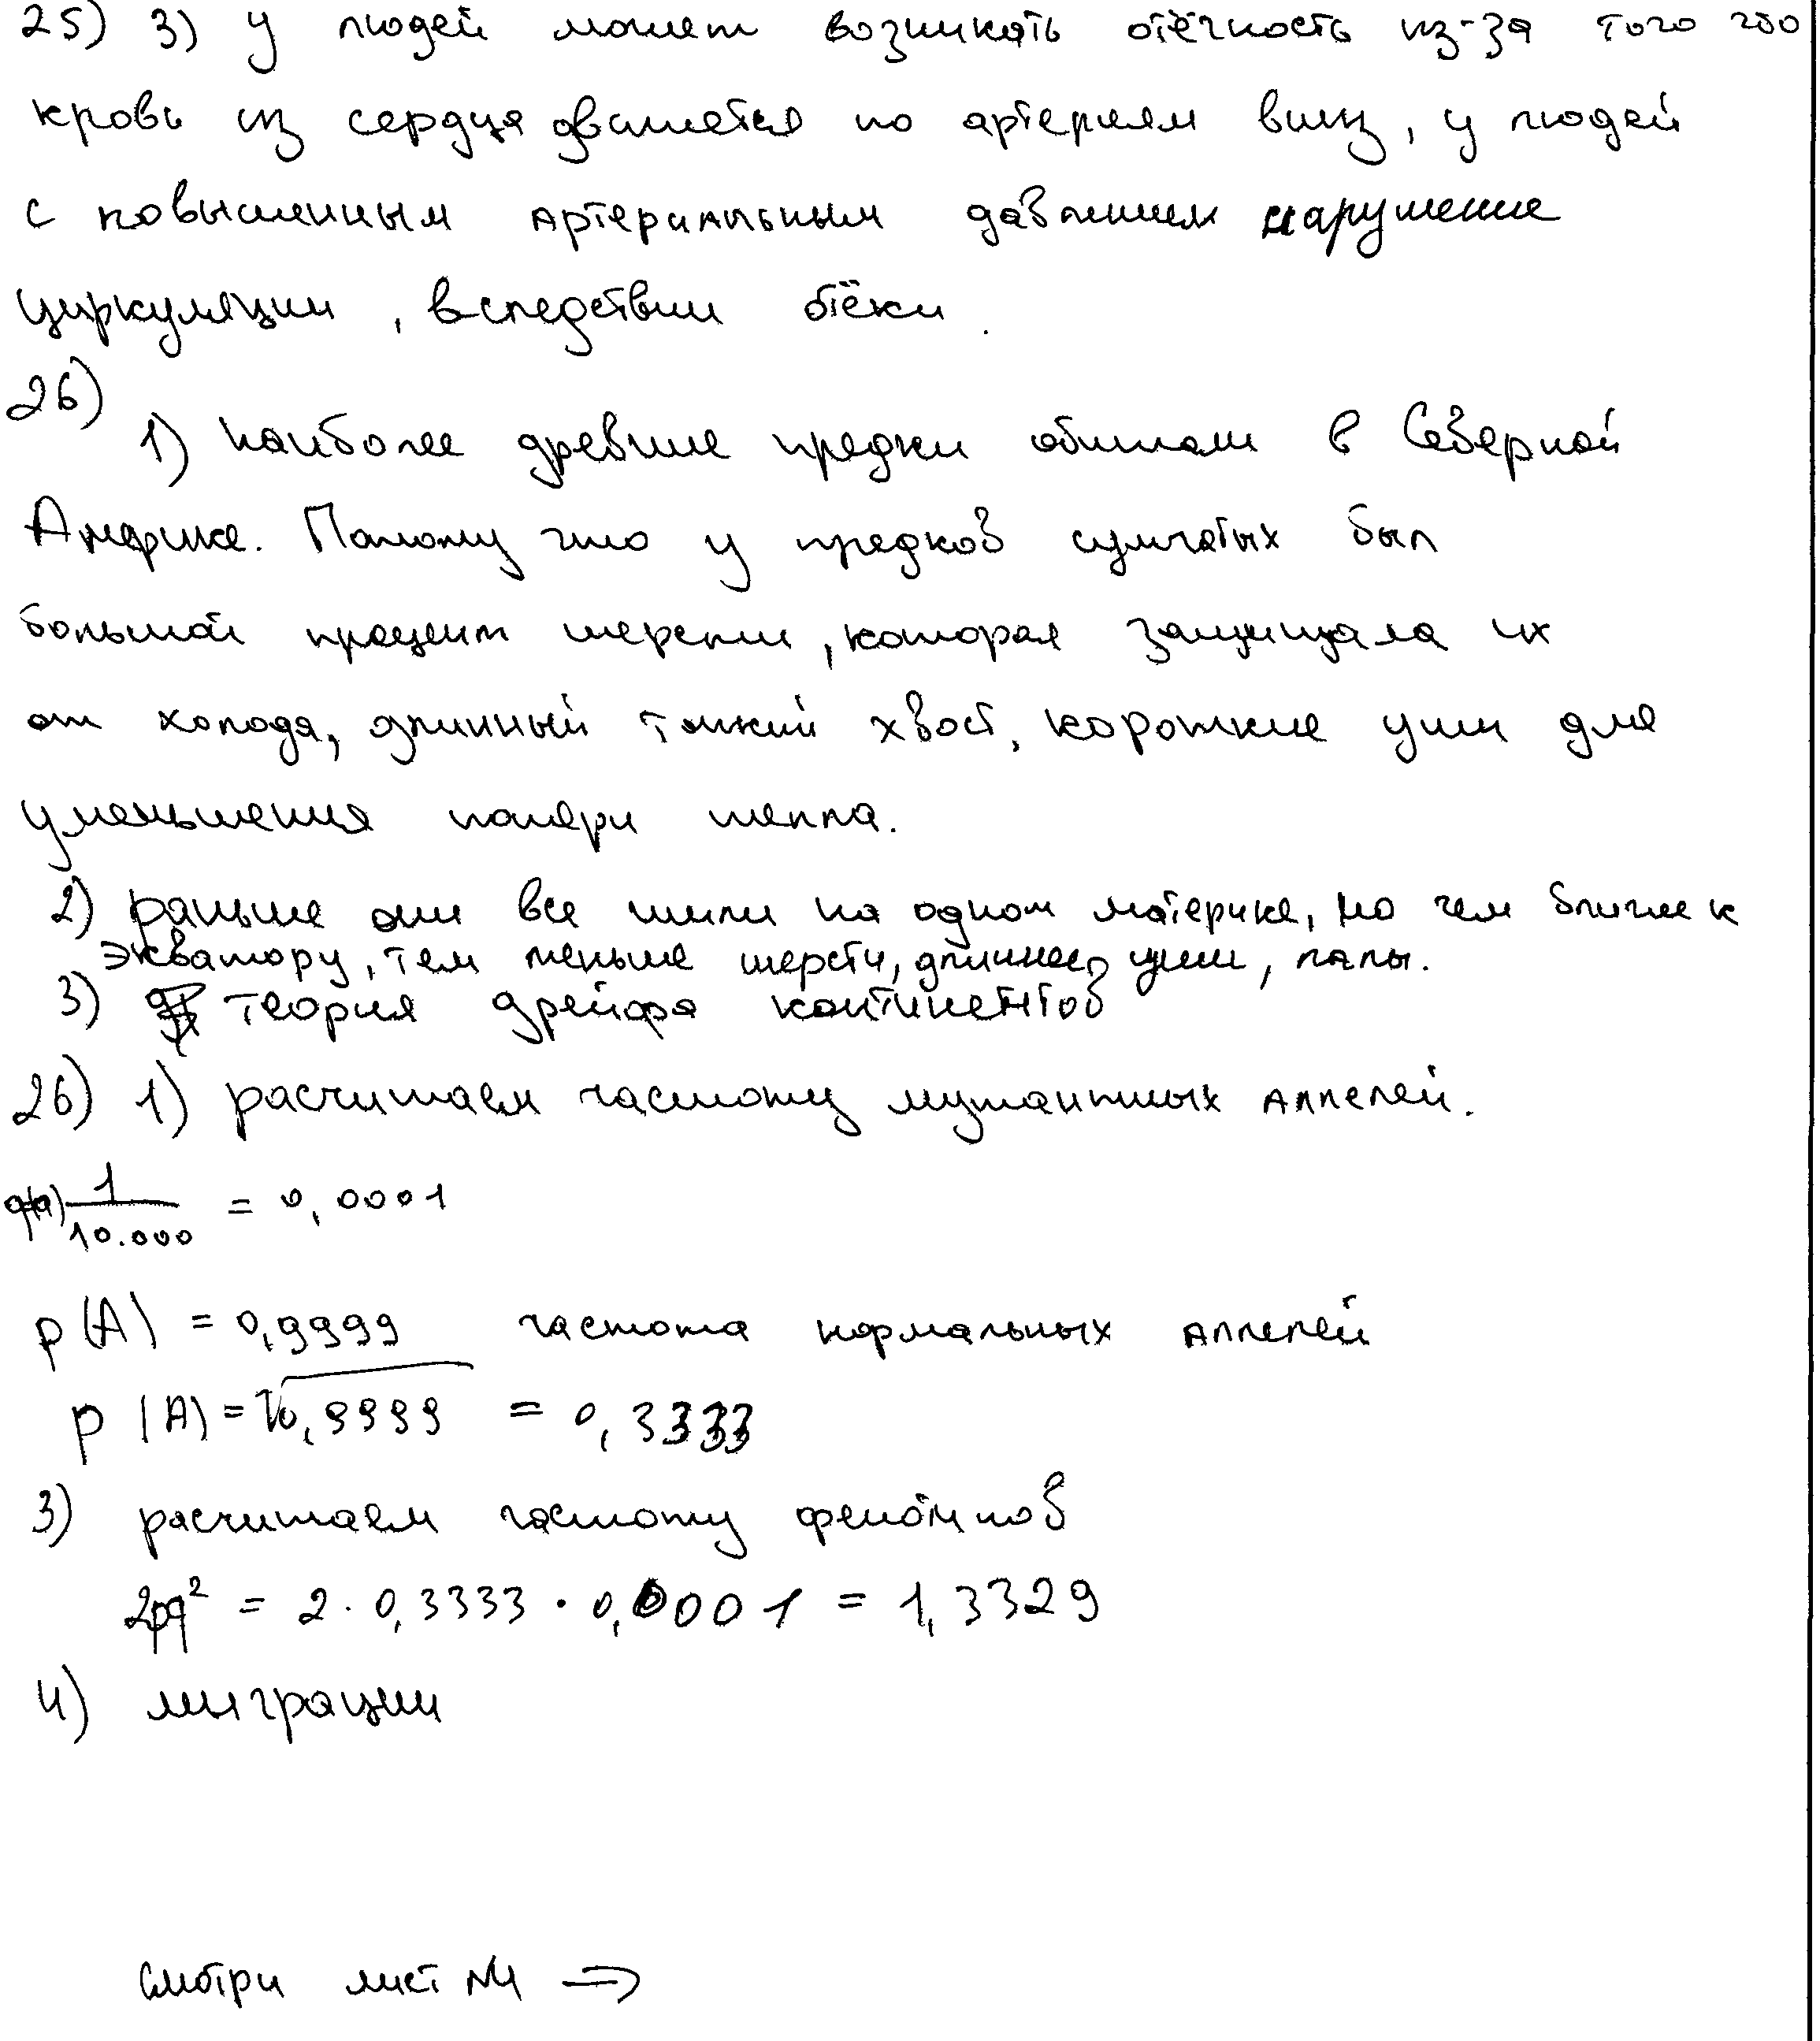 25) 3) у людей может возникать отёчность из-за того что
кровь из сердца движется по артериям вниз, у людей
с повышенным артериальным давлением нарушение
циркуляции, вследствии отёки.
26)
1) Наиболее древние предки обитали в Северной
Америке. Потому что у предков сумчатых был
большой процент шерсти, которая защищала их
от холода, длинный тонкий хвост, короткие уши для
уменьшения потери тепла.
2) раньше они все жили на одном материке, но чем ближе к
экватору, тем меньше шерсти, длиннее уши, лапы.
3) теория дрейфа континентов
26) 1) расчитаем частоту мутантных аллелей.
1/10.000 = 0,0001
p(A) = 0,9999 частота нормальных аллелей
p(A) = √0,9999 = 0,3333
3) расчитаем частоту фенотипов
2pq² = 2 · 0,3333 · 0,0001 = 1,3329
4) миграции
Смотри лист №4 ⇒